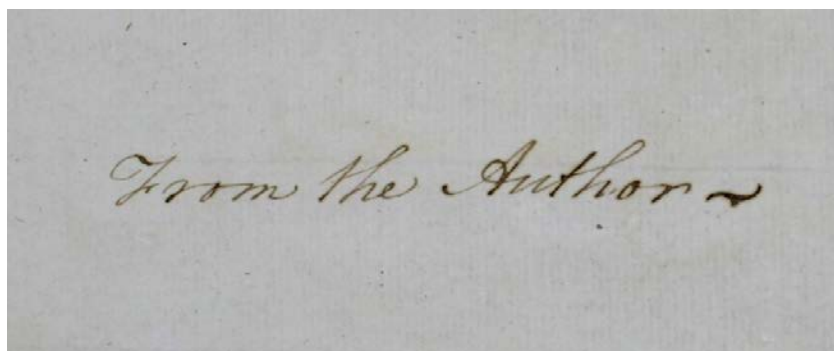 From the Author ~